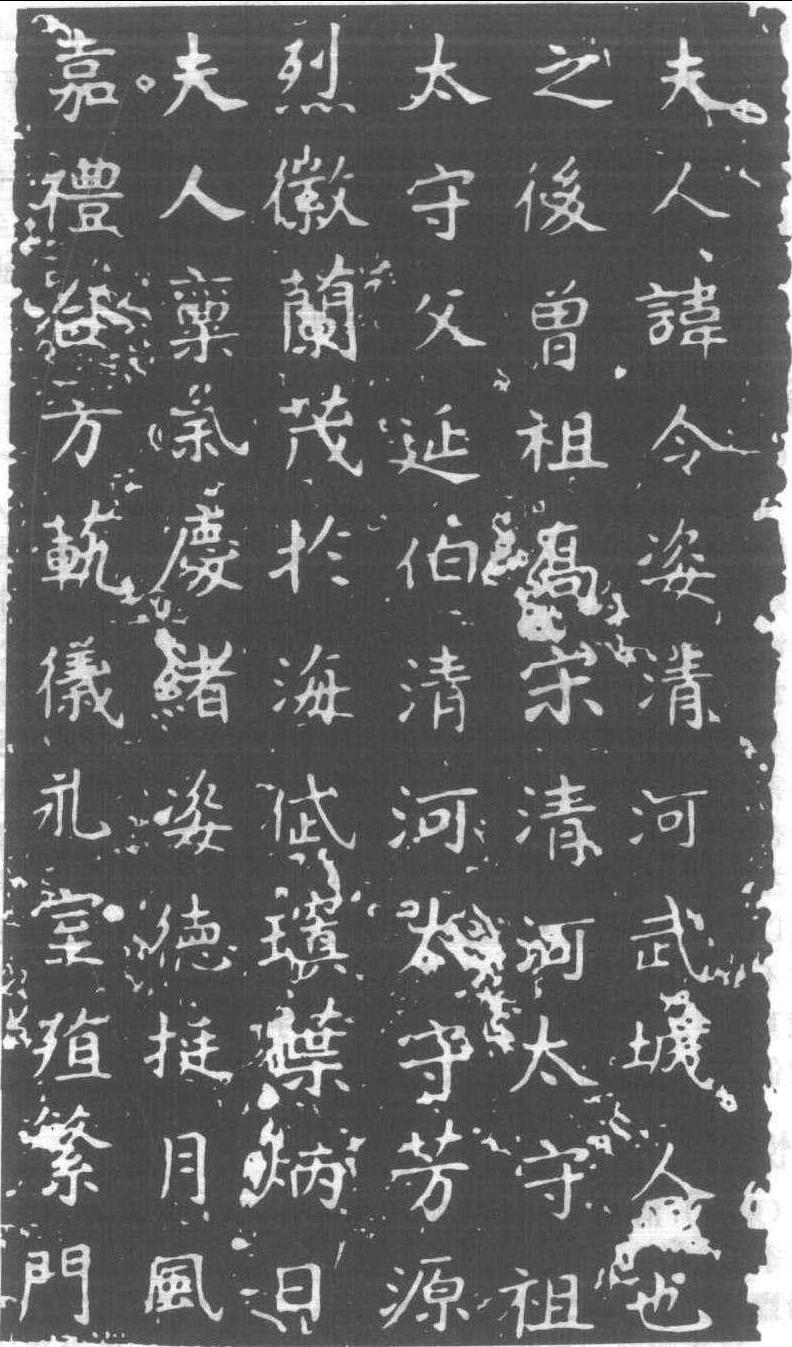 夫人諱令姿清河武城人也
之後曾祖宋清河太守祖
太守父延伯清河太守芳源
烈徽蘭茂於海岱葉炳日
夫人稟氣慶緒姿德挺月風
嘉禮方軌儀礼室殖繁門